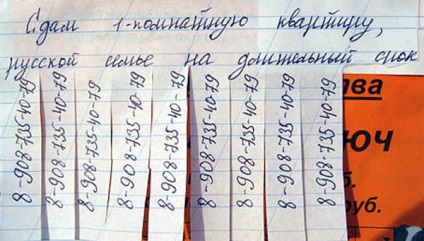 Сдам 1-комнатную квартиру,
русской семье на длительный срок
8-908-735-40-79
8-908-735-40-79
8-908-735-40-79
8-908-735-40-79
8-908-735-40-79
8-908-735-40-79
8-908-735-40-79
8-908-735-40-79
8-908-735-40-79
ва
юч
б.
руб.